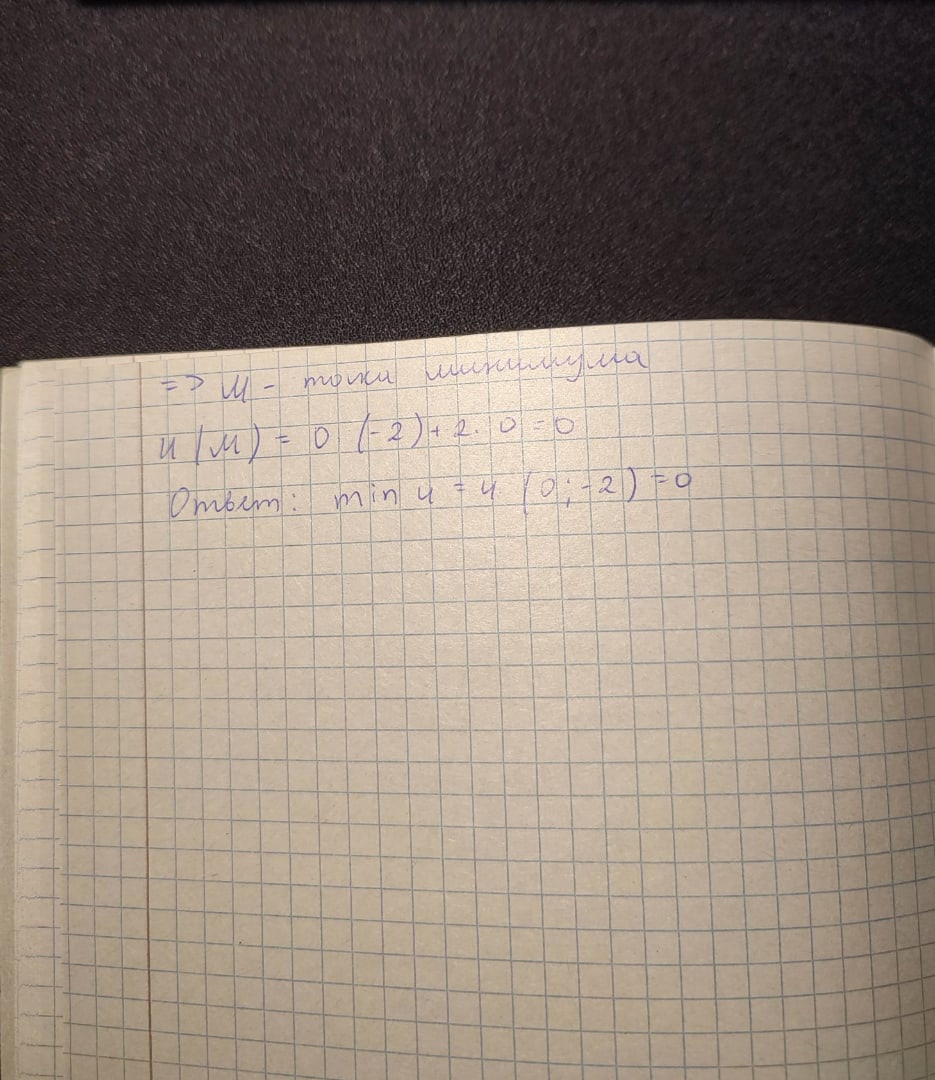 => M - точка минимума
u(M) = 0 (-2) + 2 · 0 = 0
Ответ: min u = u (0; -2) = 0